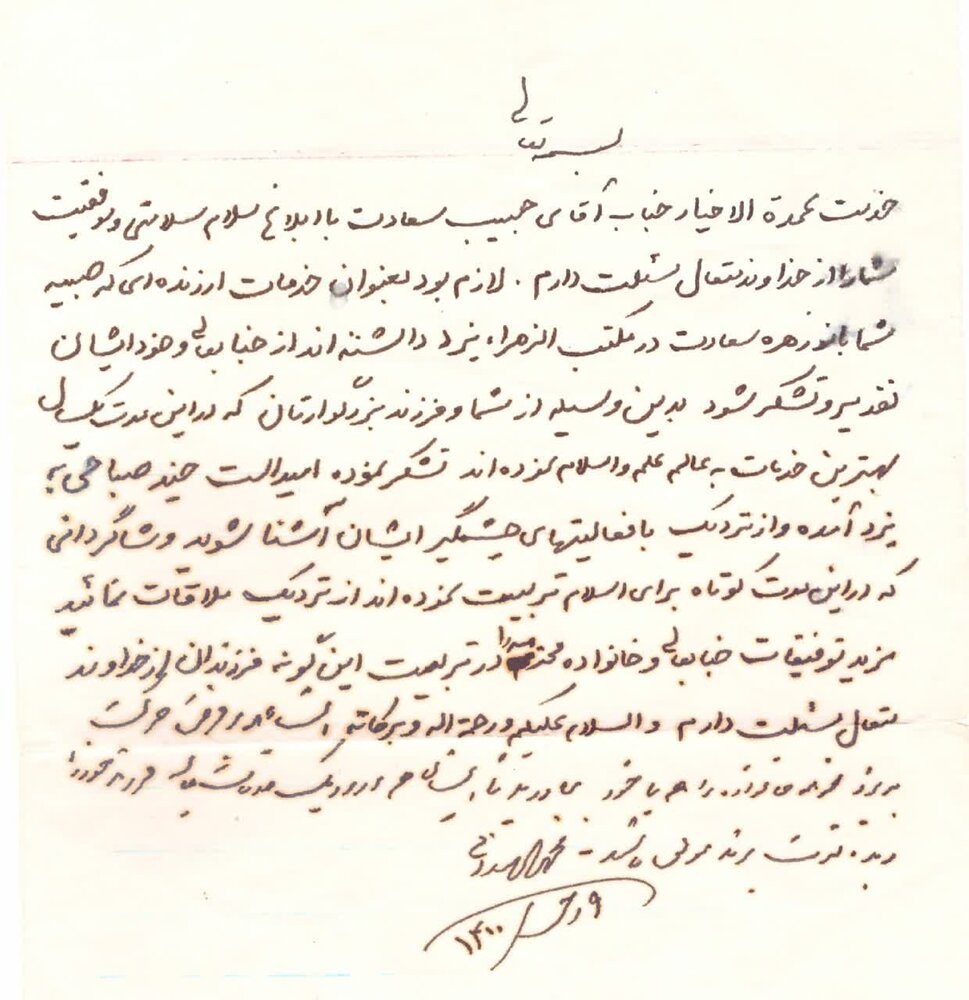 بسمه تعالی
خدمت عمدة الاخیار جناب آقای حبیب سعادت با ابلاغ سلام سلامتی و موفقیت
شما را از خداوند متعال مسئلت دارم. لازم بود بعنوان خدمات ارزنده‌ای که صبیه
شما بانو زهره سعادت در مکتب الزهراء یزد داشته‌اند از جنابعالی و خود ایشان
تقدیر و تشکر شود بدین وسیله از شما و فرزند بزرگوارتان که در این مدت یکسال
بهترین خدمات به عالم علم و اسلام نموده‌اند تشکر نموده امید است چند صباحی به
یزد آمده و از نزدیک با فعالیتهای چشمگیر ایشان آشنا شوید و شاگردانی
که در این مدت کوتاه برای اسلام تربیت نموده‌اند از نزدیک ملاقات نمائید
مزید توفیقات جنابعالی و خانواده محترم را در تربیت این گونه فرزندان از خداوند
متعال مسئلت دارم والسلام علیکم و رحمة اله و برکاته حرکت
به یزد را هم با خود بیاورید تا ایشان هم نزدیک فرزند خود را
۹ صفر ۱۴۰۰